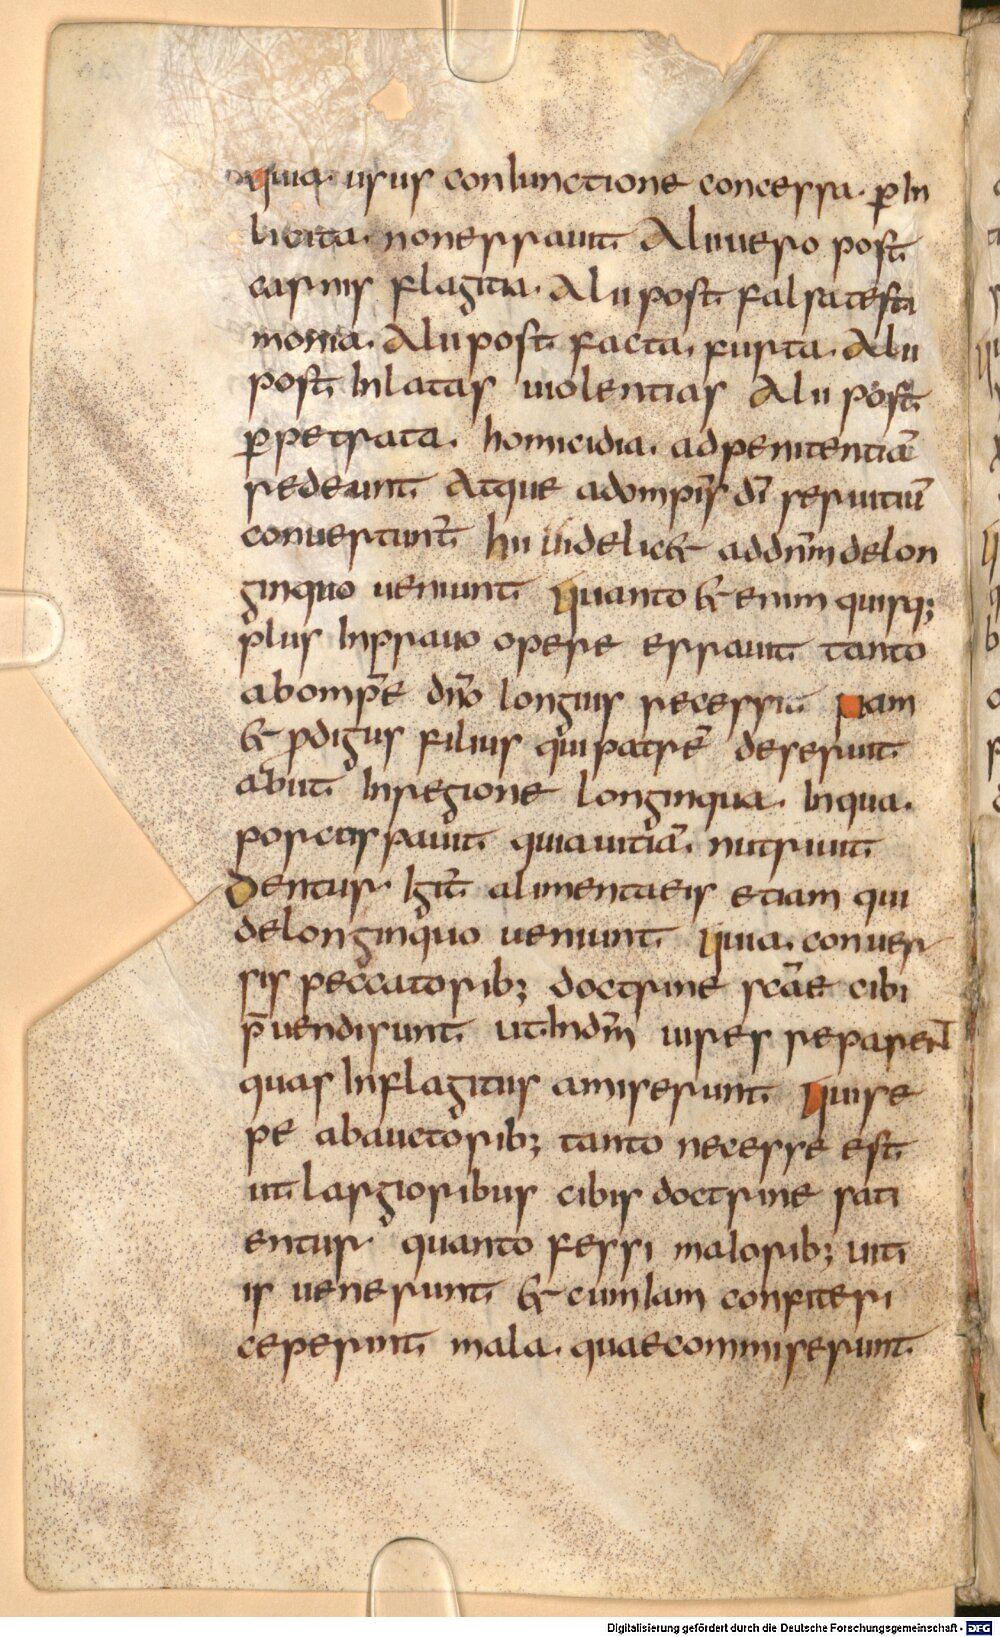 quia. usus coniunctione concessa. p̱ in
licita. non errauit. Alii uero post
carnis flagitia. Alii post falsa testi
monia. Alii post facta. furta. Alii
post inlatas uiolentias Alii post
p̱petrata. homicidia. ad penitentiā
redeunt. Atque ad omp̄is dī seruitiū
conuertunt̄ hii uidelic& ad dn̄m de lon
ginquo ueniunt. Quanto &enim quisq;
plus in prauo opere errauit. tanto
ab omp̄e dn̄o longius recessit. Nam
& pdigus filius qui patrē deseruit
abiit. in regione longinqua. in qua.
porcus pauit. quia uitia. nutriuit.
Dentur. igit̄ alimentaeis etiam qui
de longinquo ueniunt. Quia. conuer
sis peccatorib; doctrine scāe cibi
p̄uendi sunt. ut in dm̄ uires reparent
quas in flagitiis amiserunt. Qui se
pe ab auctorib; tanto necesse est
ut largioribus cibis doctrine sati
entur quanto fessi malorib; uiti
is uenerunt. & cum iam confiteri
ceperunt. mala. quae commiserunt.
Digitalisierung gefördert durch die Deutsche Forschungsgemeinschaft - DFG